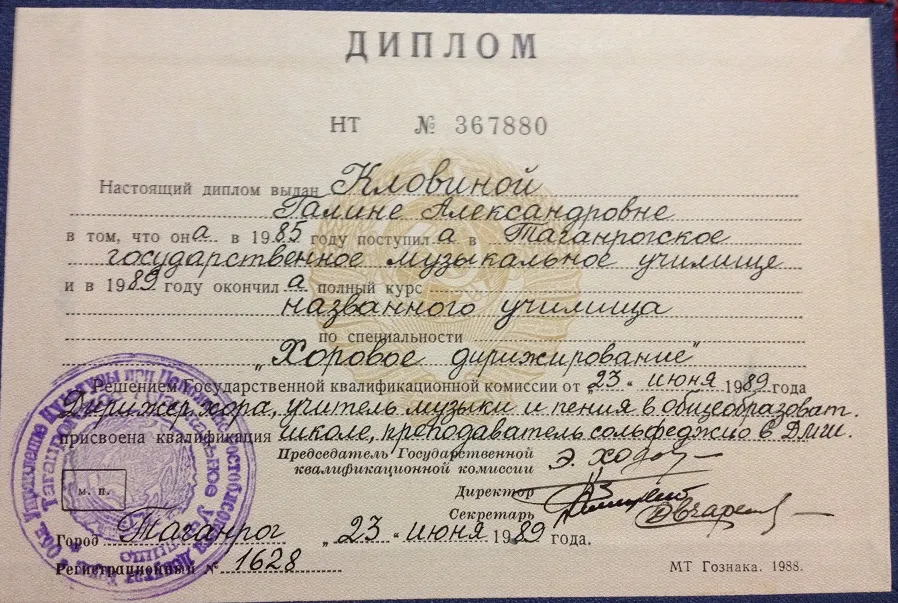 ДИПЛОМ
НТ № 367880
Настоящий диплом выдан Кловиной
Галине Александровне
в том, что она в 1985 году поступила в Таганрогское
государственное музыкальное училище
и в 1989 году окончила полный курс
названного училища
по специальности
„Хоровое дирижирование"
Решением Государственной квалификационной комиссии от „23" июня 1989 года
Дирижер хора, учитель музыки и пения в общеобразоват.
присвоена квалификация школе, преподаватель сольфеджио в ДМШ.
Председатель Государственной
квалификационной комиссии
Директор
Секретарь
м. п.
Город Таганрог „23" июня 1989 года.
Регистрационный № 1628
МТ Гознака. 1988.